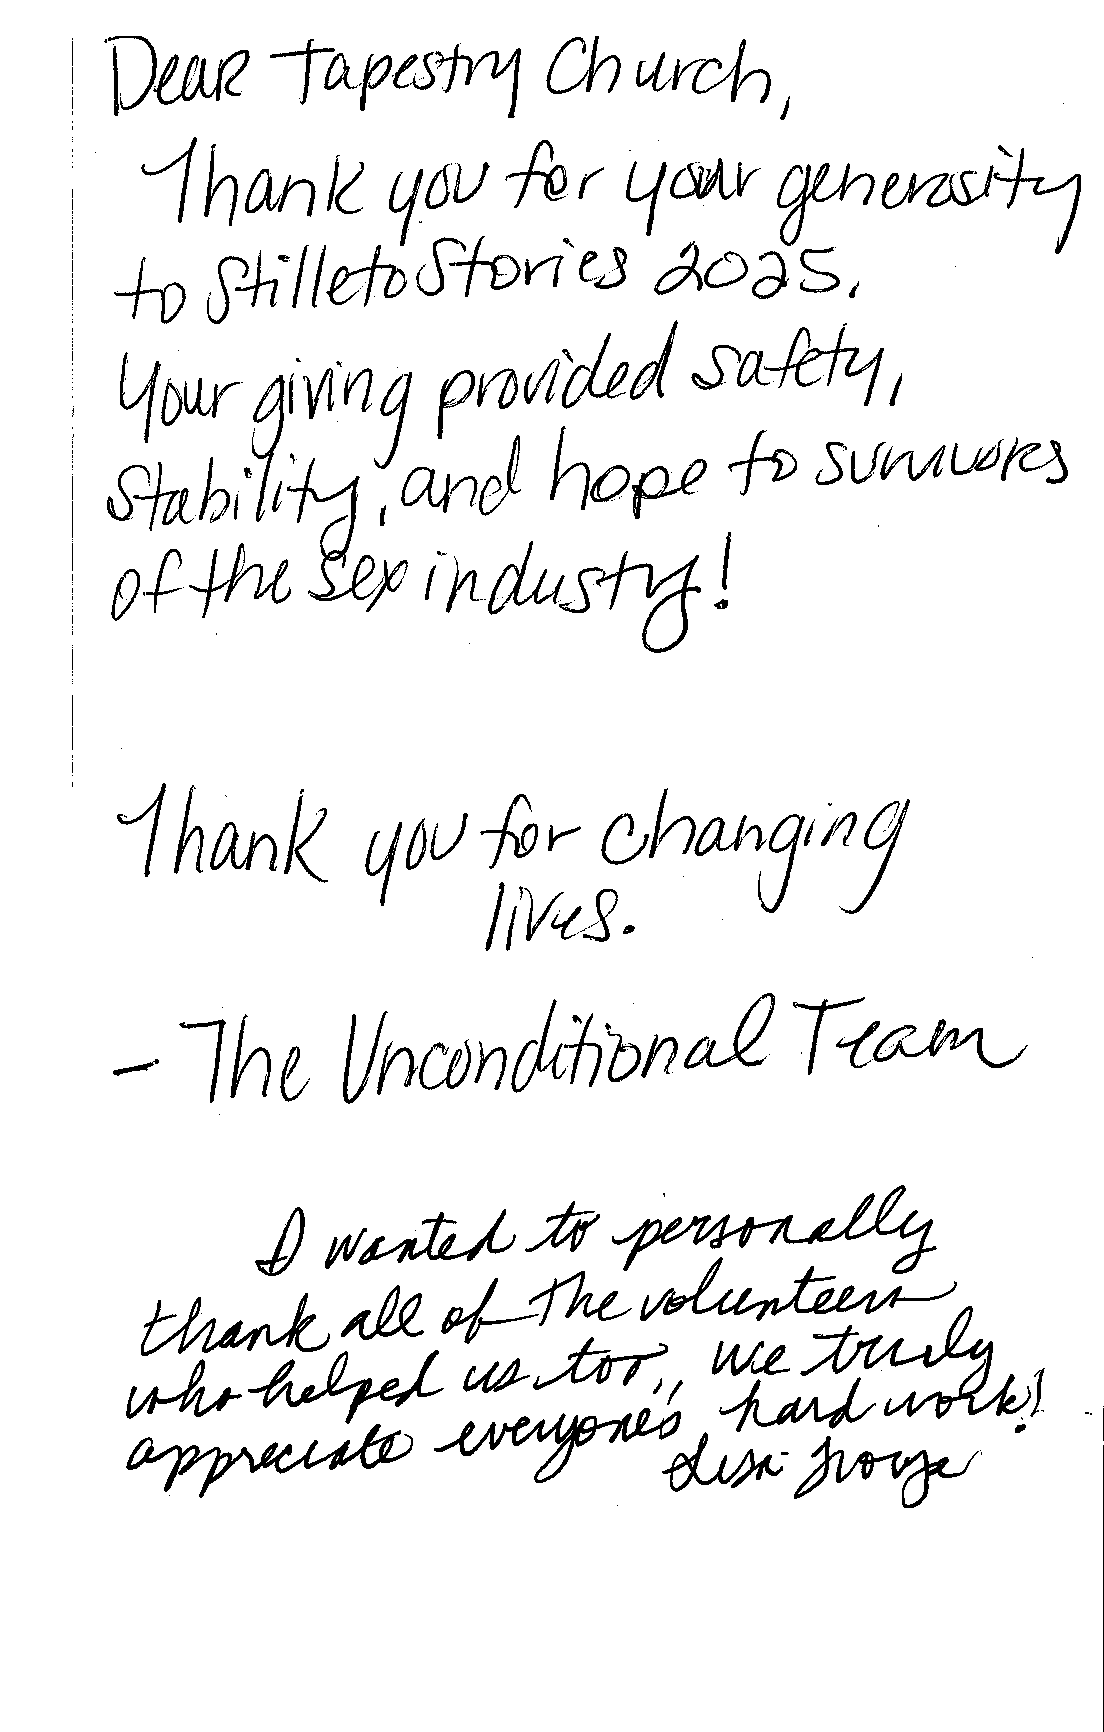 Dear Tapestry Church,
Thank you for your generosity
to Stilleto Stories 2025.
Your giving provided safety,
Stability, and hope to survivors
of the sex industry!
Thank you for changing
lives.
- The Unconditional Team
I wanted to personally
thank all of the volunteers
who helped us too, we truly
appreciate everyone's hard work!
Lisa